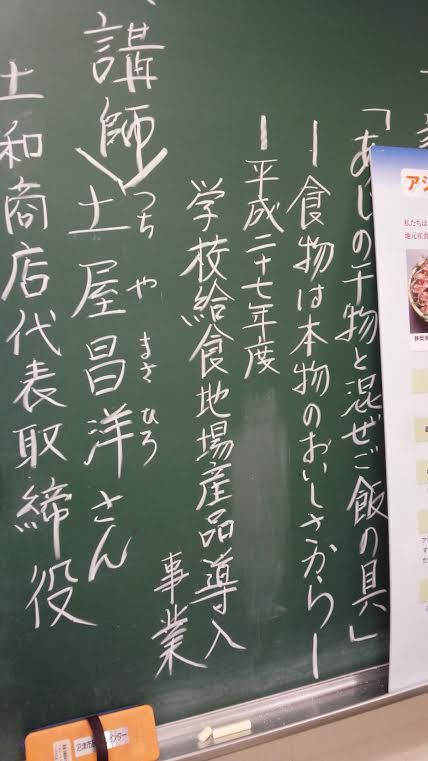 「あじの干物と混ぜご飯の具」
ー食物は本物のおいしさからー
ー平成二十七年度
学校給食地場産品導入
事業
講師
つち や まさ ひろ
土屋昌洋さん
土和商店代表取締役
アジ
私たちは
地元産食
静岡県